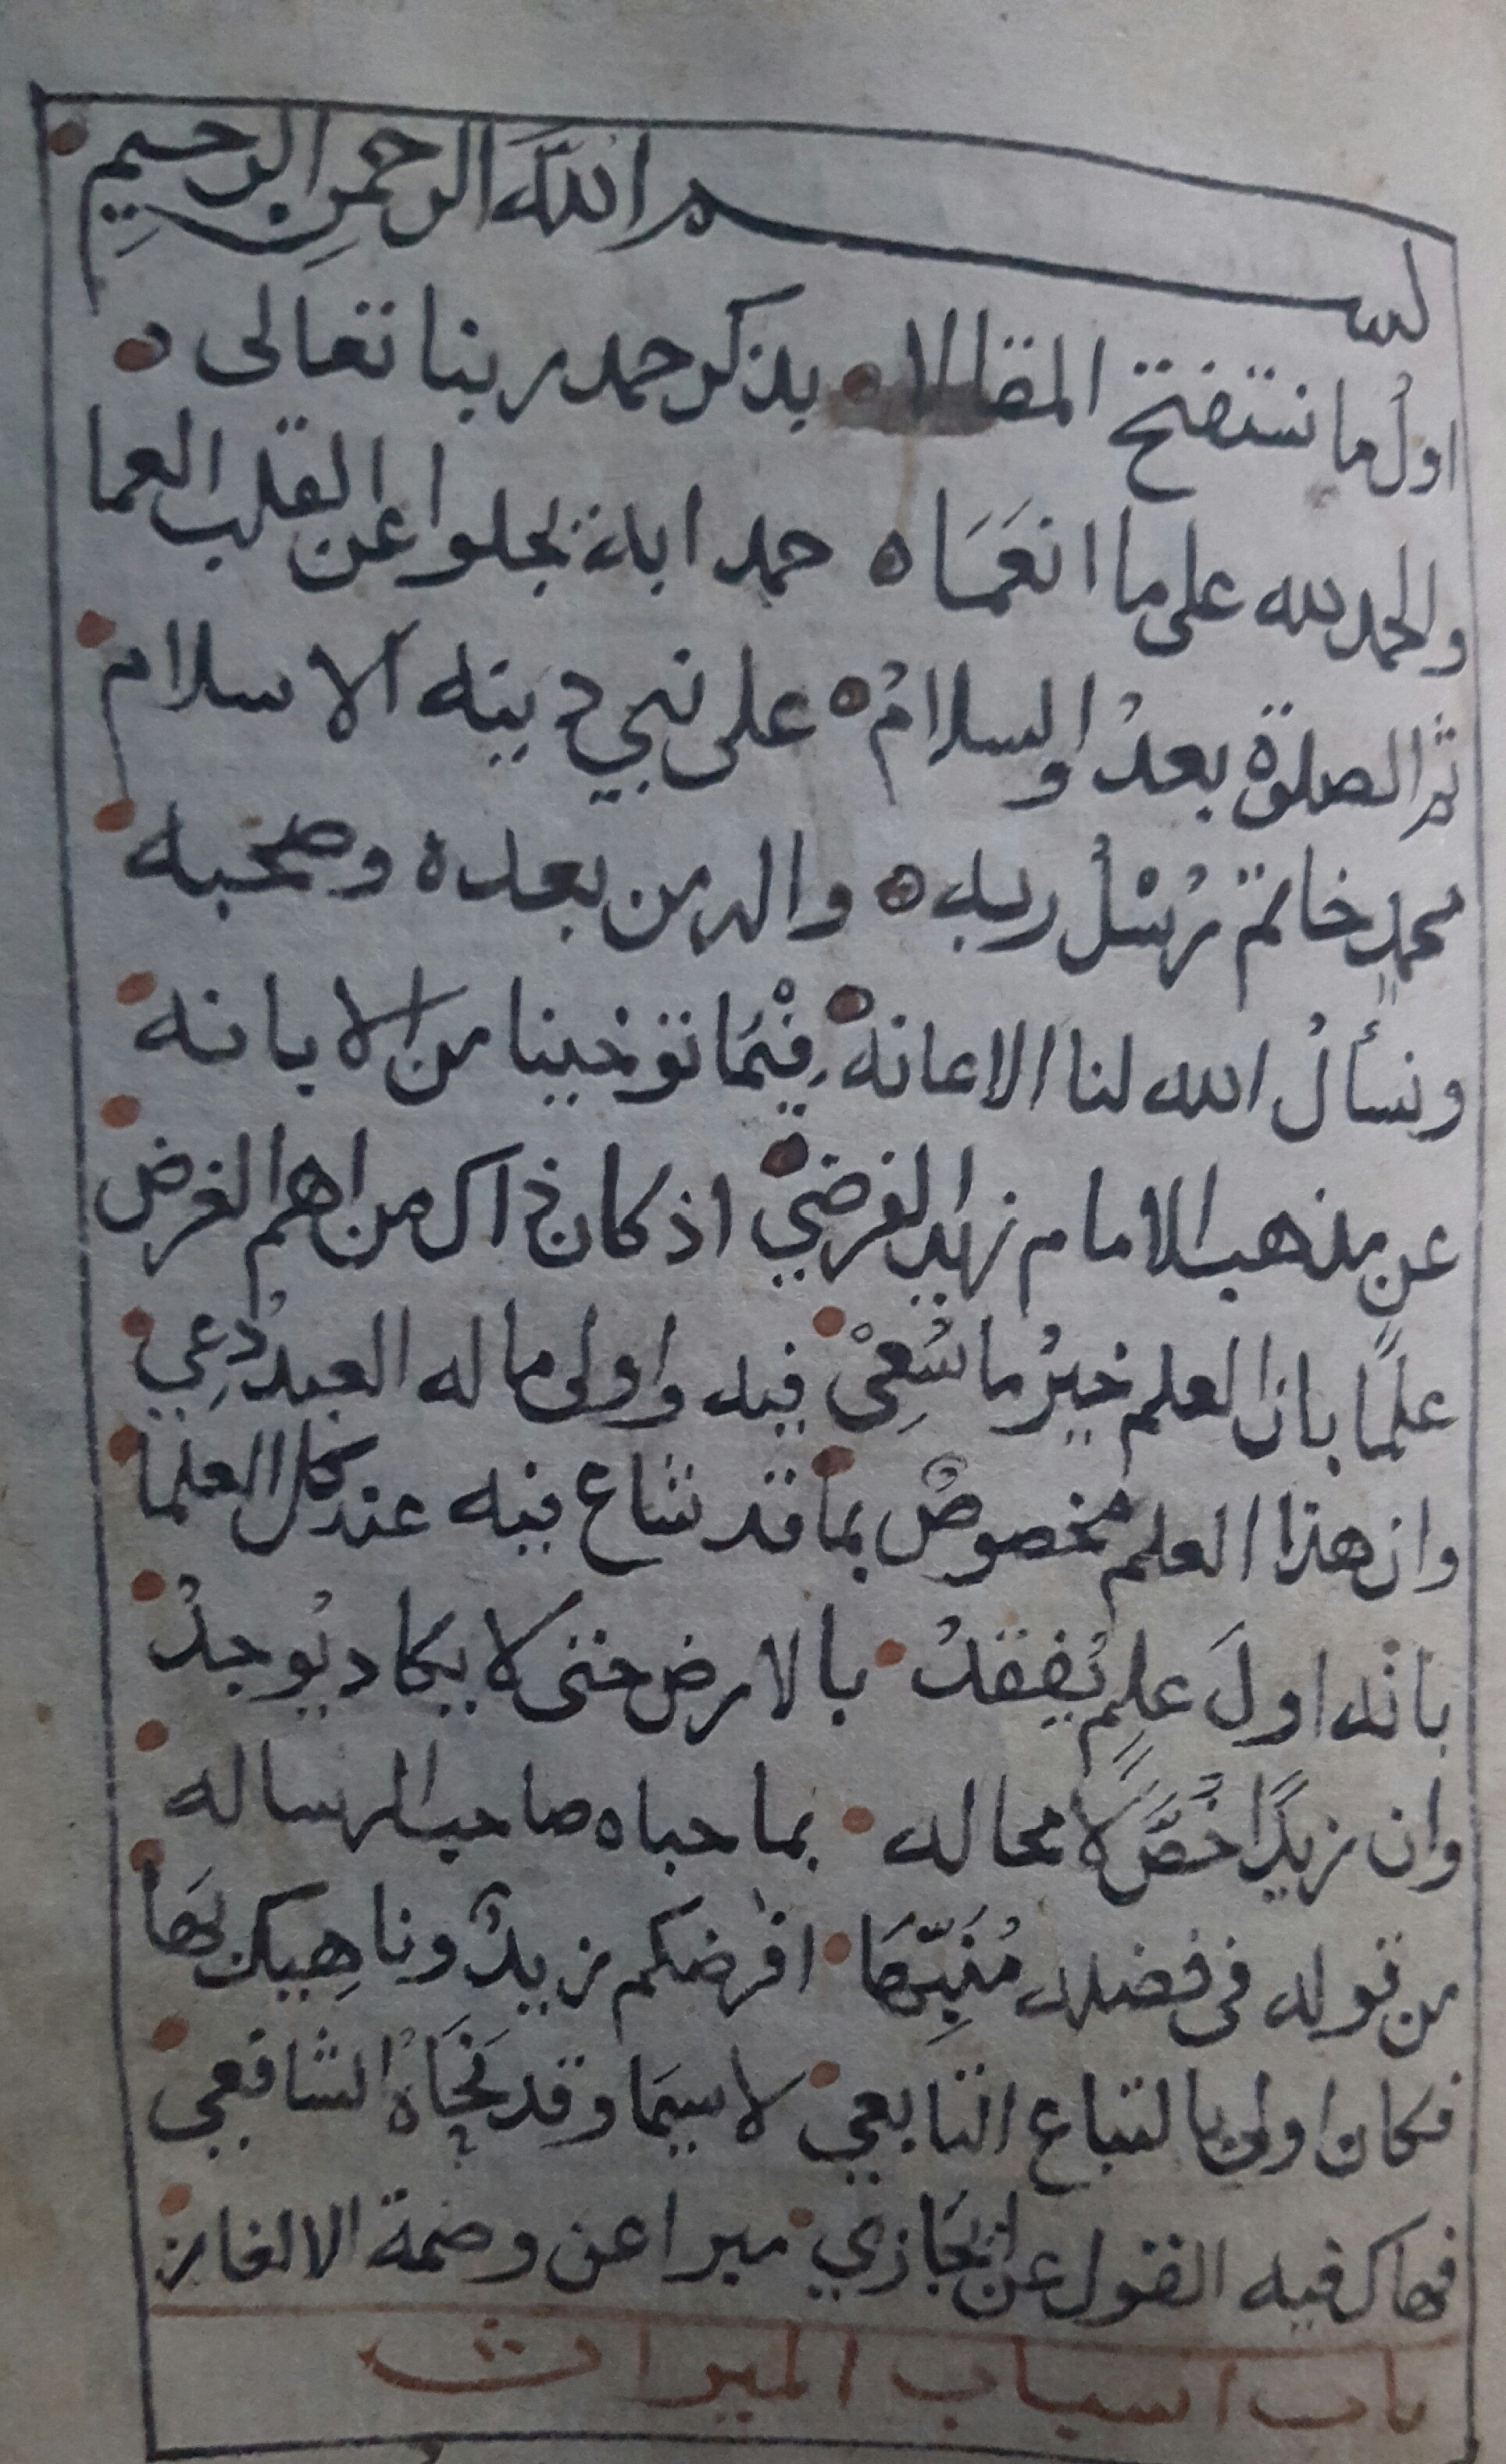 بسم الله الرحمن الرحيم
اولُ ما نستفتح المقالا بذكر حمد ربنا تعالى
والحمد لله على ما انعَمَا حمدا به يجلوا عن القلب العما
ثم الصلوة بعدُ والسلامُ على نبي دينه الاسلام
محمدٍ خاتم رُسْلُ ربه واله من بعده وصحبه
ونسألُ الله لنا الاعانهْ فيْمَا توخينا من الابانه
عن مذهب الامام زيد الفرضيْ اذ كان ذاك من اهم الغرض
علمًا بان العلم خيرُ ما سُعِيْ فيه واولى ما له العبدُ دُعِي
وان هذا العلم مخصوصٌ بما قد شاع فيه عند كل العلما
بانه اولَ علمٍ يُفقدُ بالارض حتى لا يكاد يُوجدُ
وان زيدًا خُصَّ لا محاله بما حباه صاحب الرساله
من قوله في فضله مُنَبِّهَا افرضكم زيدٌ وناهِيك بهَا
فكان اولى بالتباع التابعي لا سيمَا وقد نَحَاهُ الشافعي
فهاك فيه القول عن ايْجَازي مبرا عن وصمة الالغاز
باب اسباب الميراث